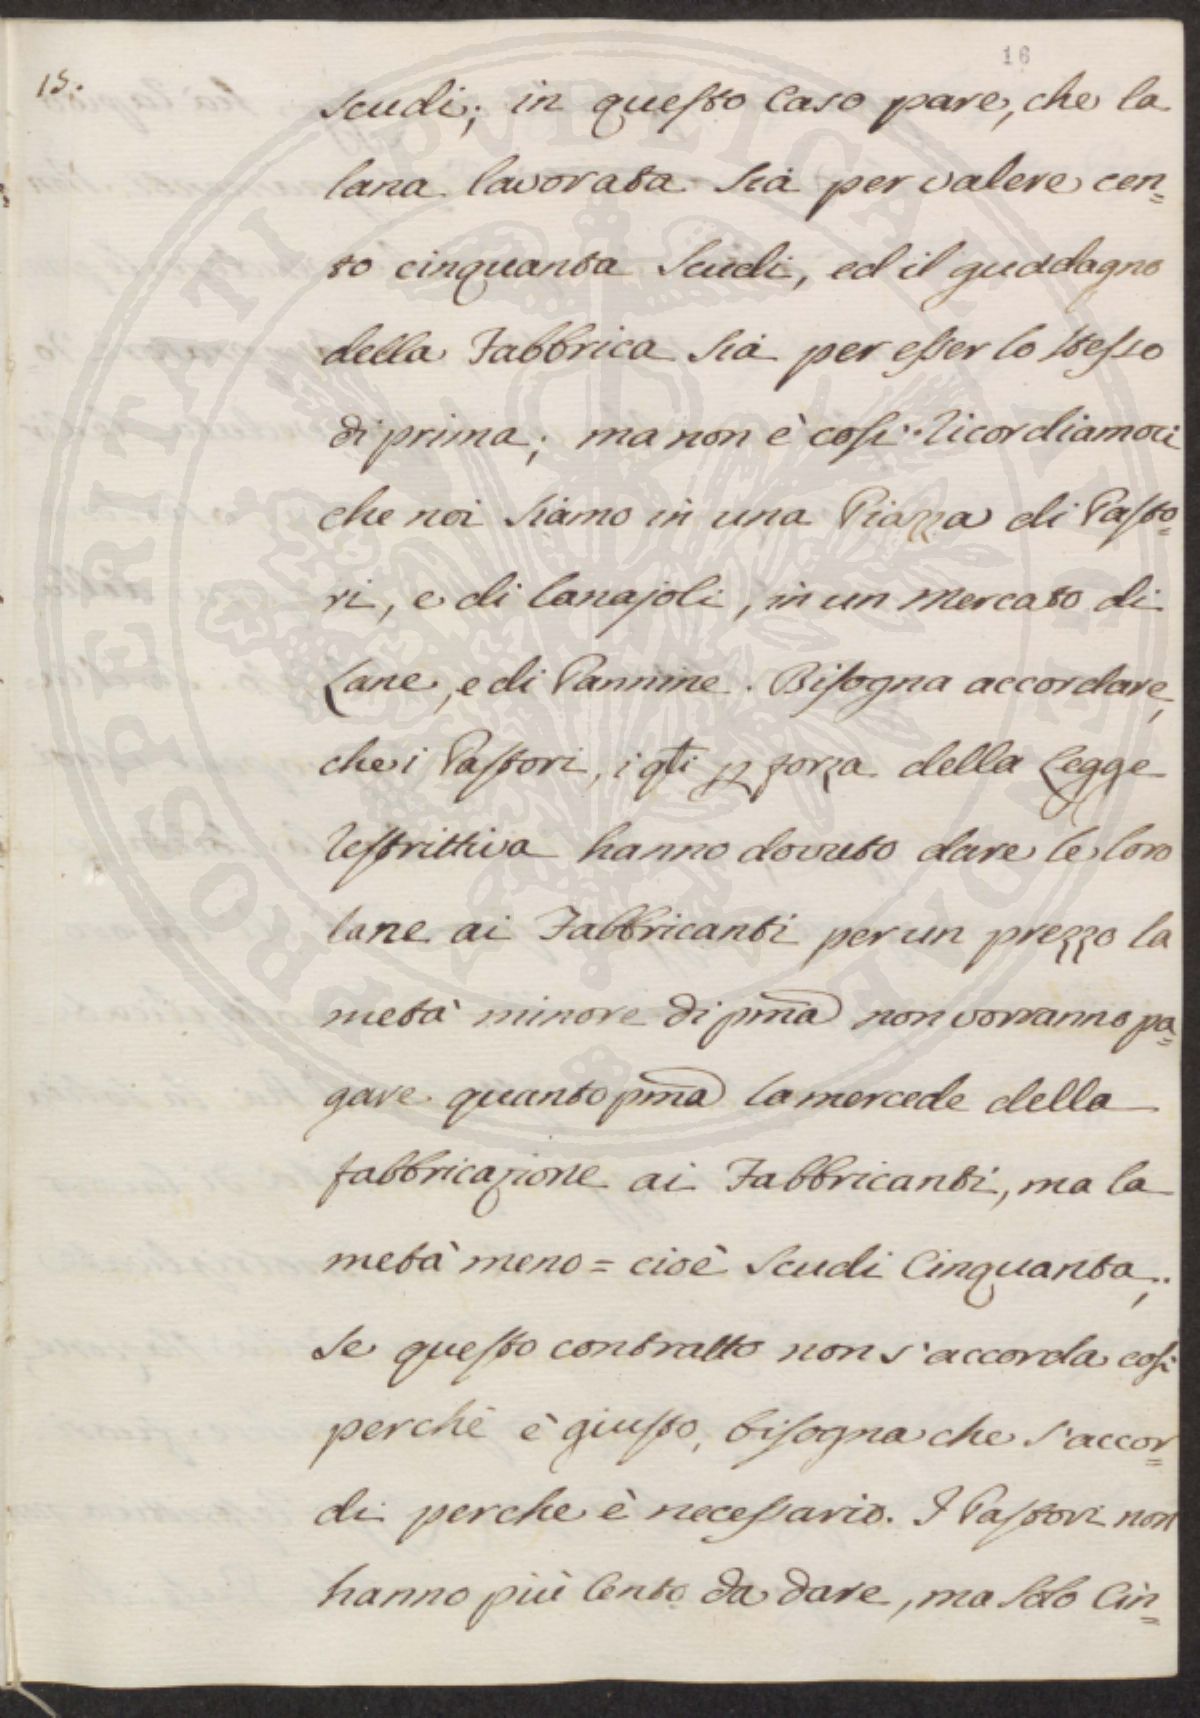 16
15.
scudi; in questo Caso pare, che la
lana lavorata sia per valere cen=
to cinquanta scudi, ed il guadagno
della Fabbrica sia per esser lo stesso
di prima; ma non è così. Ricordiamoci
che noi siamo in una Piazza di Pasto=
ri, e di lanajoli, in un mercato di
Lane, e di Pannine. Bisogna accordare,
che i Pastori, i qti p forza della Legge
restrittiva hanno dovuto dare le loro
lane ai Fabbricanti per un prezzo la
metà minore di pma non vorranno pa=
gare quanto pma la mercede della
fabbricazione ai Fabbricanti, ma la
metà meno = cioè scudi Cinquanta;.
se questo contratto non s'accorda così
perchè è giusto, bisogna che s'accor=
di perche è necessario. I Pastori non
hanno più Cento da dare, ma solo Cin=
PROSPERITATI PVBLICAE AVGENDAE